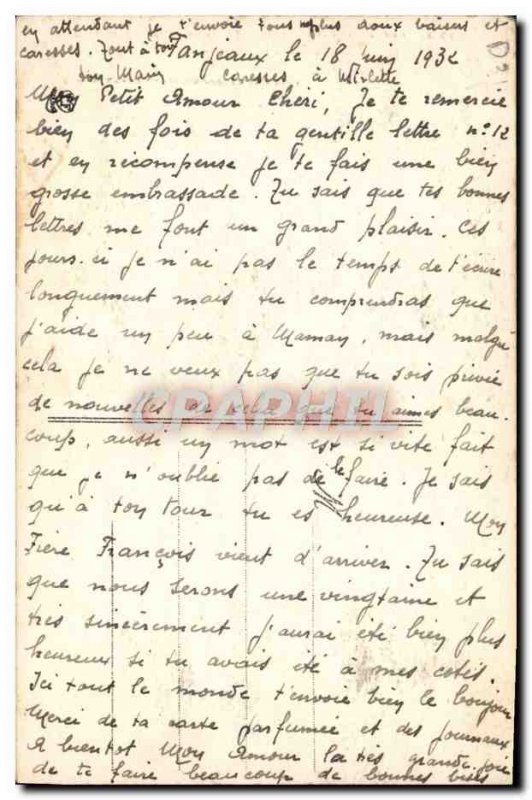 en attendant je t'envoie tous mes plus doux baisers et
caresses. Tout à toi Fanjeaux le 18 Juin 1932
ton Mari caresses à Mirlette
Mon Petit Amour Cheri, Je te remercie
bien des fois de ta gentille lettre n° 12
et en récompense je te fais une bien
grosse embrassade. Tu sais que tes bonnes
lettres me font un grand plaisir. Ces
jours-ci je n'ai pas le temps de t'écrire
longuement mais tu comprendras que
j'aide un peu à Maman, mais malgré
cela je ne veux pas que tu sois privée
de nouvelles de celui que tu aimes beau-
coup, aussi un mot est si vite fait
que je n'oublie pas de le faire. Je sais
qu'à ton tour tu es heureuse. Mon
Frère François vient d'arriver. Tu sais
que nous serons une vingtaine et
très sincèrement j'aurai été bien plus
heureux si tu avais été à mes cotés.
Ici tout le monde t'envoie bien le bonjour
Merci de ta carte parfumée et des journaux
A bientot Mon Amour la très grande joie
de te faire beaucoup de bonnes bises
CPAPHIL